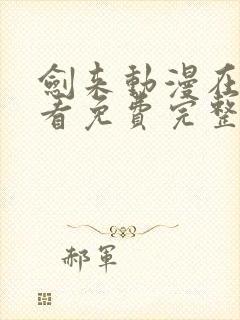 劍來動漫在
看免費完整
郝軍